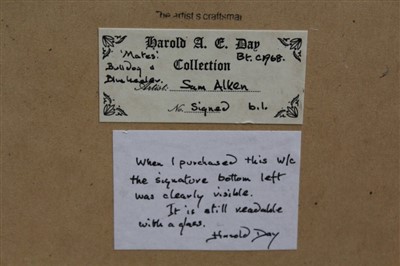 The artist's craftsman
Harold A. E. Day
'Mates' Bt. C1968.
Bulldog & Collection
Blue heeler.
Artist: Sam Alken
No. Signed b.l.
When I purchased this w/c
the signature bottom left
was clearly visible.
It is still readable
with a glass.
Harold Day